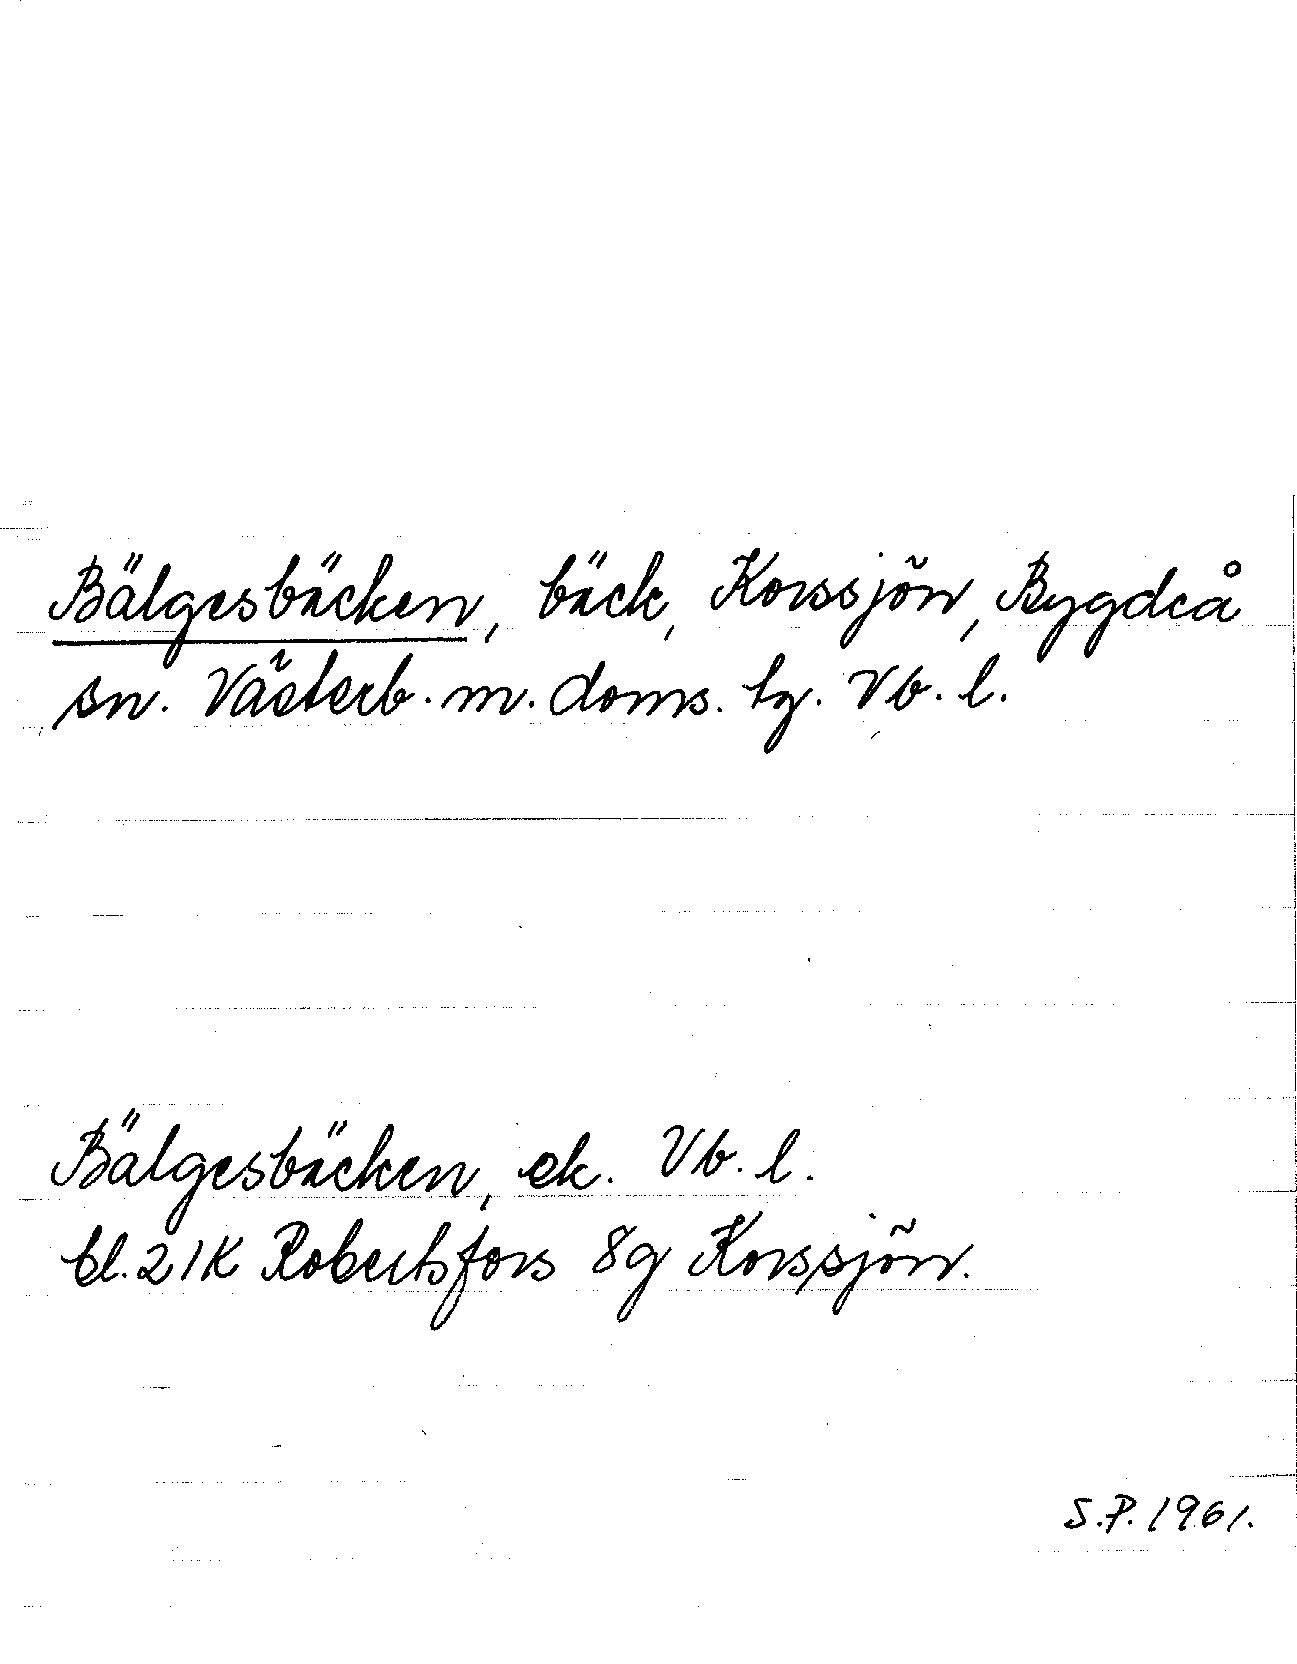 Bälgesbäcken, bäck, Korssjön, Bygdeå
sn. Västerb. m. doms. lg. Vb. l.
Bälgesbäcken, ek. Vb. l.
bl. 21K Robertsfors 8g Korssjön.
S.P. 1961.